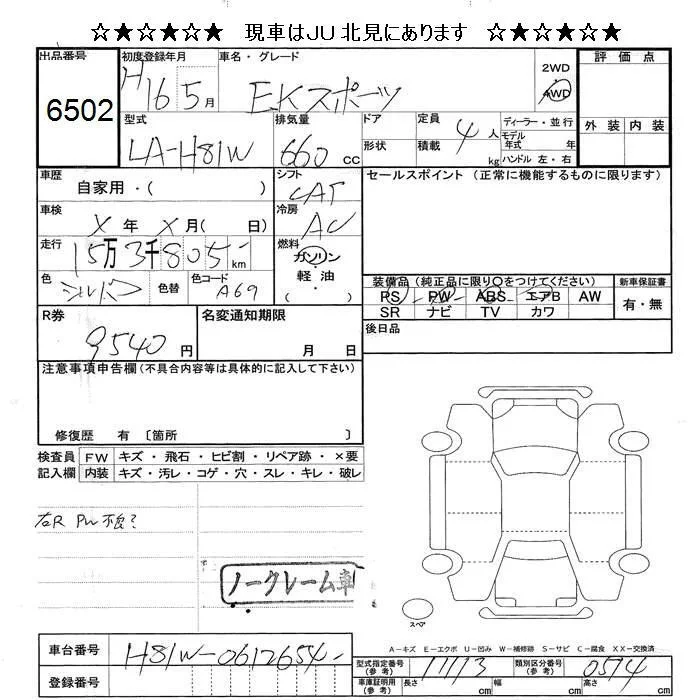 ☆★☆★☆★ 現車はJU 北見にあります ☆★☆★☆★
出品番号 6502
初度登録年月 H16 5月
車名・グレード EKスポーツ
2WD 4WD
評価点
外装 内装
型式 LA-H81W
排気量 660 cc
ドア 形状
定員 4人
積載 kg
ディーラー・並行
モデル年式 年
ハンドル 左・右
車歴 自家用・( )
シフト CAT
セールスポイント (正常に機能するものに限ります)
車検 X年 X月( 日)
冷房 AC
走行 15万3千805- km
燃料 ガソリン 軽油 ( )
色 シルバー 色替 色コード A69
装備品(純正品に限り〇をつけてください)
新車保証書
PS PW ABS エアB AW
SR ナビ TV カワ
有・無
R券 9540円
名変通知期限 月 日
後日品
注意事項申告欄(不具合内容等は具体的に記入して下さい)
修復歴 有 〔箇所 〕
検査員 FW キズ・飛石・ヒビ割・リペア跡・×要
記入欄 内装 キズ・汚レ・コゲ・穴・スレ・キレ・破レ
右R PW 不良?
ノークレーム車
スペア
A-キズ E-エクボ U-凹み W-補修跡 S-サビ C-腐食 XX-交換済
車台番号 H81W-0612654-
型式指定番号(参考) 11113
類別区分番号(参考) 0514
登録番号
車庫証明用(参考) 長さ cm 幅 cm 高さ cm